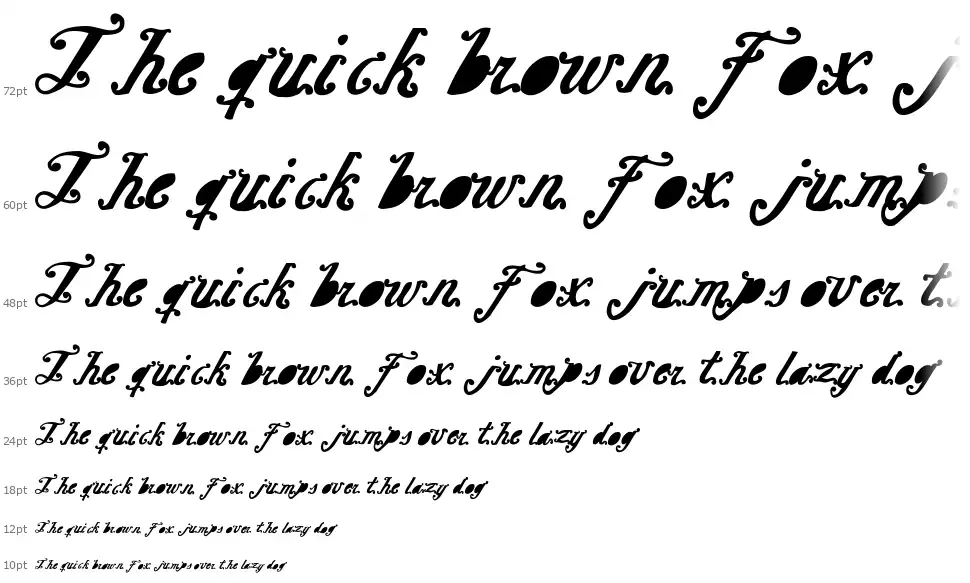 72pt The quick brown Fox j
60pt The quick brown Fox jump
48pt The quick brown Fox jumps over t
36pt The quick brown Fox jumps over the lazy dog
24pt The quick brown Fox jumps over the lazy dog
18pt The quick brown Fox jumps over the lazy dog
12pt The quick brown Fox jumps over the lazy dog
10pt The quick brown Fox jumps over the lazy dog